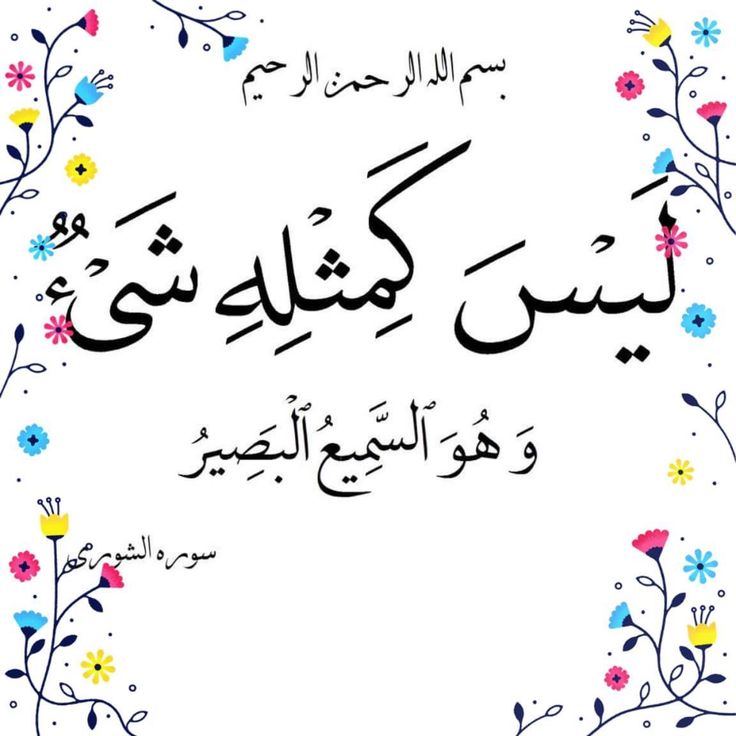 بسم الله الرحمن الرحيم
لَيْسَ كَمِثْلِهِ شَىْءٌ
وَ هُوَ ٱلسَّمِيعُ ٱلْبَصِيرُ
سوره الشورى